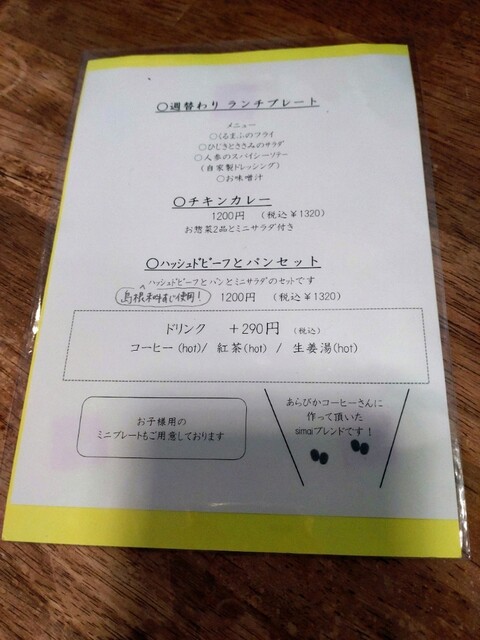 〇週替わり ランチプレート
メニュー
〇くるまふのフライ
〇ひじきとささみのサラダ
〇人参のスパイシーソテー
(自家製ドレッシング)
〇お味噌汁
〇チキンカレー
1200円 (税込￥1320)
お惣菜2品とミニサラダ付き
〇ハッシュドビーフとパンセット
ハッシュドビーフとパンとミニサラダのセットです
島根 使用! 1200円 (税込￥1320)
ドリンク +290円 (税込)
コーヒー(hot)/ 紅茶(hot) / 生姜湯(hot)
お子様用の
ミニプレートもご用意しております
あらびかコーヒーさんに
作って頂いた
simaiブレンドです!